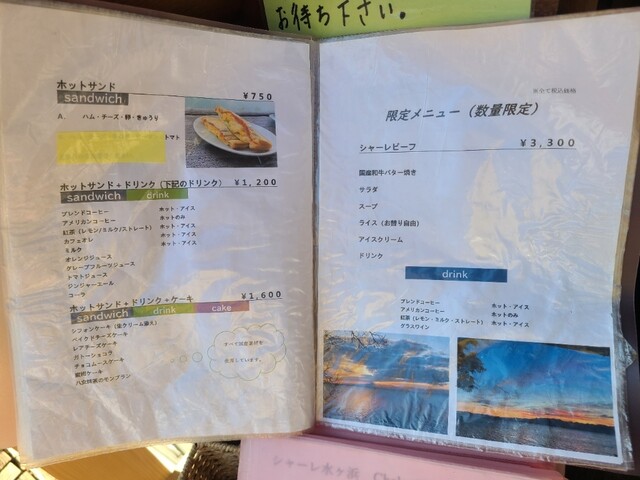 お待ち下さい。
ホットサンド
sandwich ¥750
A. ハム・チーズ・卵・きゅうり
トマト
ホットサンド+ドリンク(下記のドリンク) ¥1,200
sandwich drink
ブレンドコーヒー ホット・アイス
アメリカンコーヒー ホットのみ
紅茶(レモン/ミルク/ストレート) ホット・アイス
カフェオレ ホット・アイス
ミルク ホット・アイス
オレンジジュース
グレープフルーツジュース
トマトジュース
ジンジャーエール
コーラ
ホットサンド+ドリンク+ケーキ ¥1,600
sandwich drink cake
シフォンケーキ(生クリーム添え)
ベイクドチーズケーキ
レアチーズケーキ
ガトーショコラ
チョコムースケーキ
ケーキ
のモンブラン
すべて国産素材を
使用しています。
※全て税込価格
限定メニュー(数量限定)
シャーレビーフ ¥3,300
国産和牛バター焼き
サラダ
スープ
ライス(お替り自由)
アイスクリーム
ドリンク
drink
ブレンドコーヒー ホット・アイス
アメリカンコーヒー ホットのみ
紅茶(レモン・ミルク・ストレート) ホット・アイス
グラスワイン
シャーレ水ヶ浜